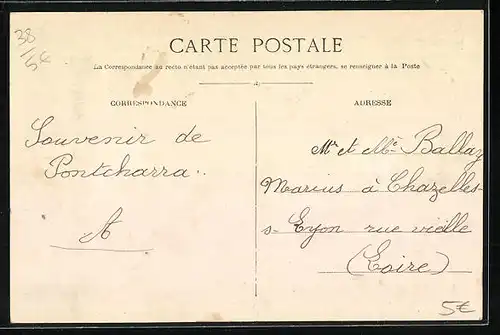 38
/5€
CARTE POSTALE
La Correspondance au recto n'étant pas acceptée par tous les pays étrangers, se renseigner à la Poste
CORRESPONDANCE
Souvenir de
Pontcharra..
A
ADRESSE
Mr et Me Ballay
Marius à Chazelles-
s-Lyon rue vieille
(Loire)
5€